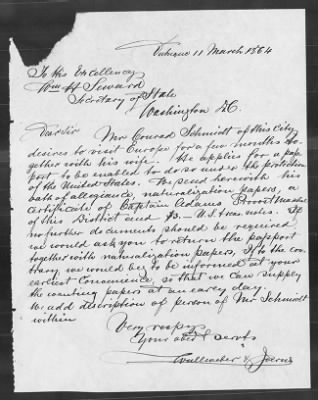 Dubuque 11 March 1864
To His Excellency
Wm H Seward
Secretary of State
Washington D.C.
Dear Sir
Mr Conrad Schmidt of this City
desires to visit Europe for a few months to-
gether with his wife. He applies for a pass
port to be enabled to do so under the protection
of the United States. We send herewith his
oath of allegiance, naturalization papers, a
Certificate of Captain Adams Provost Marshal
of this District and $3.- U.S. treas. notes. If
no further documents should be required
we would ask you to return the passport
together with naturalization papers, if to the con-
trary, we would beg to be informed at your
earliest Convenience, so that we can supply
the wanting papers at an early day.
We add description of person of Mr Schmidt
within
Very resp'y
Your obed servts
& Joerns